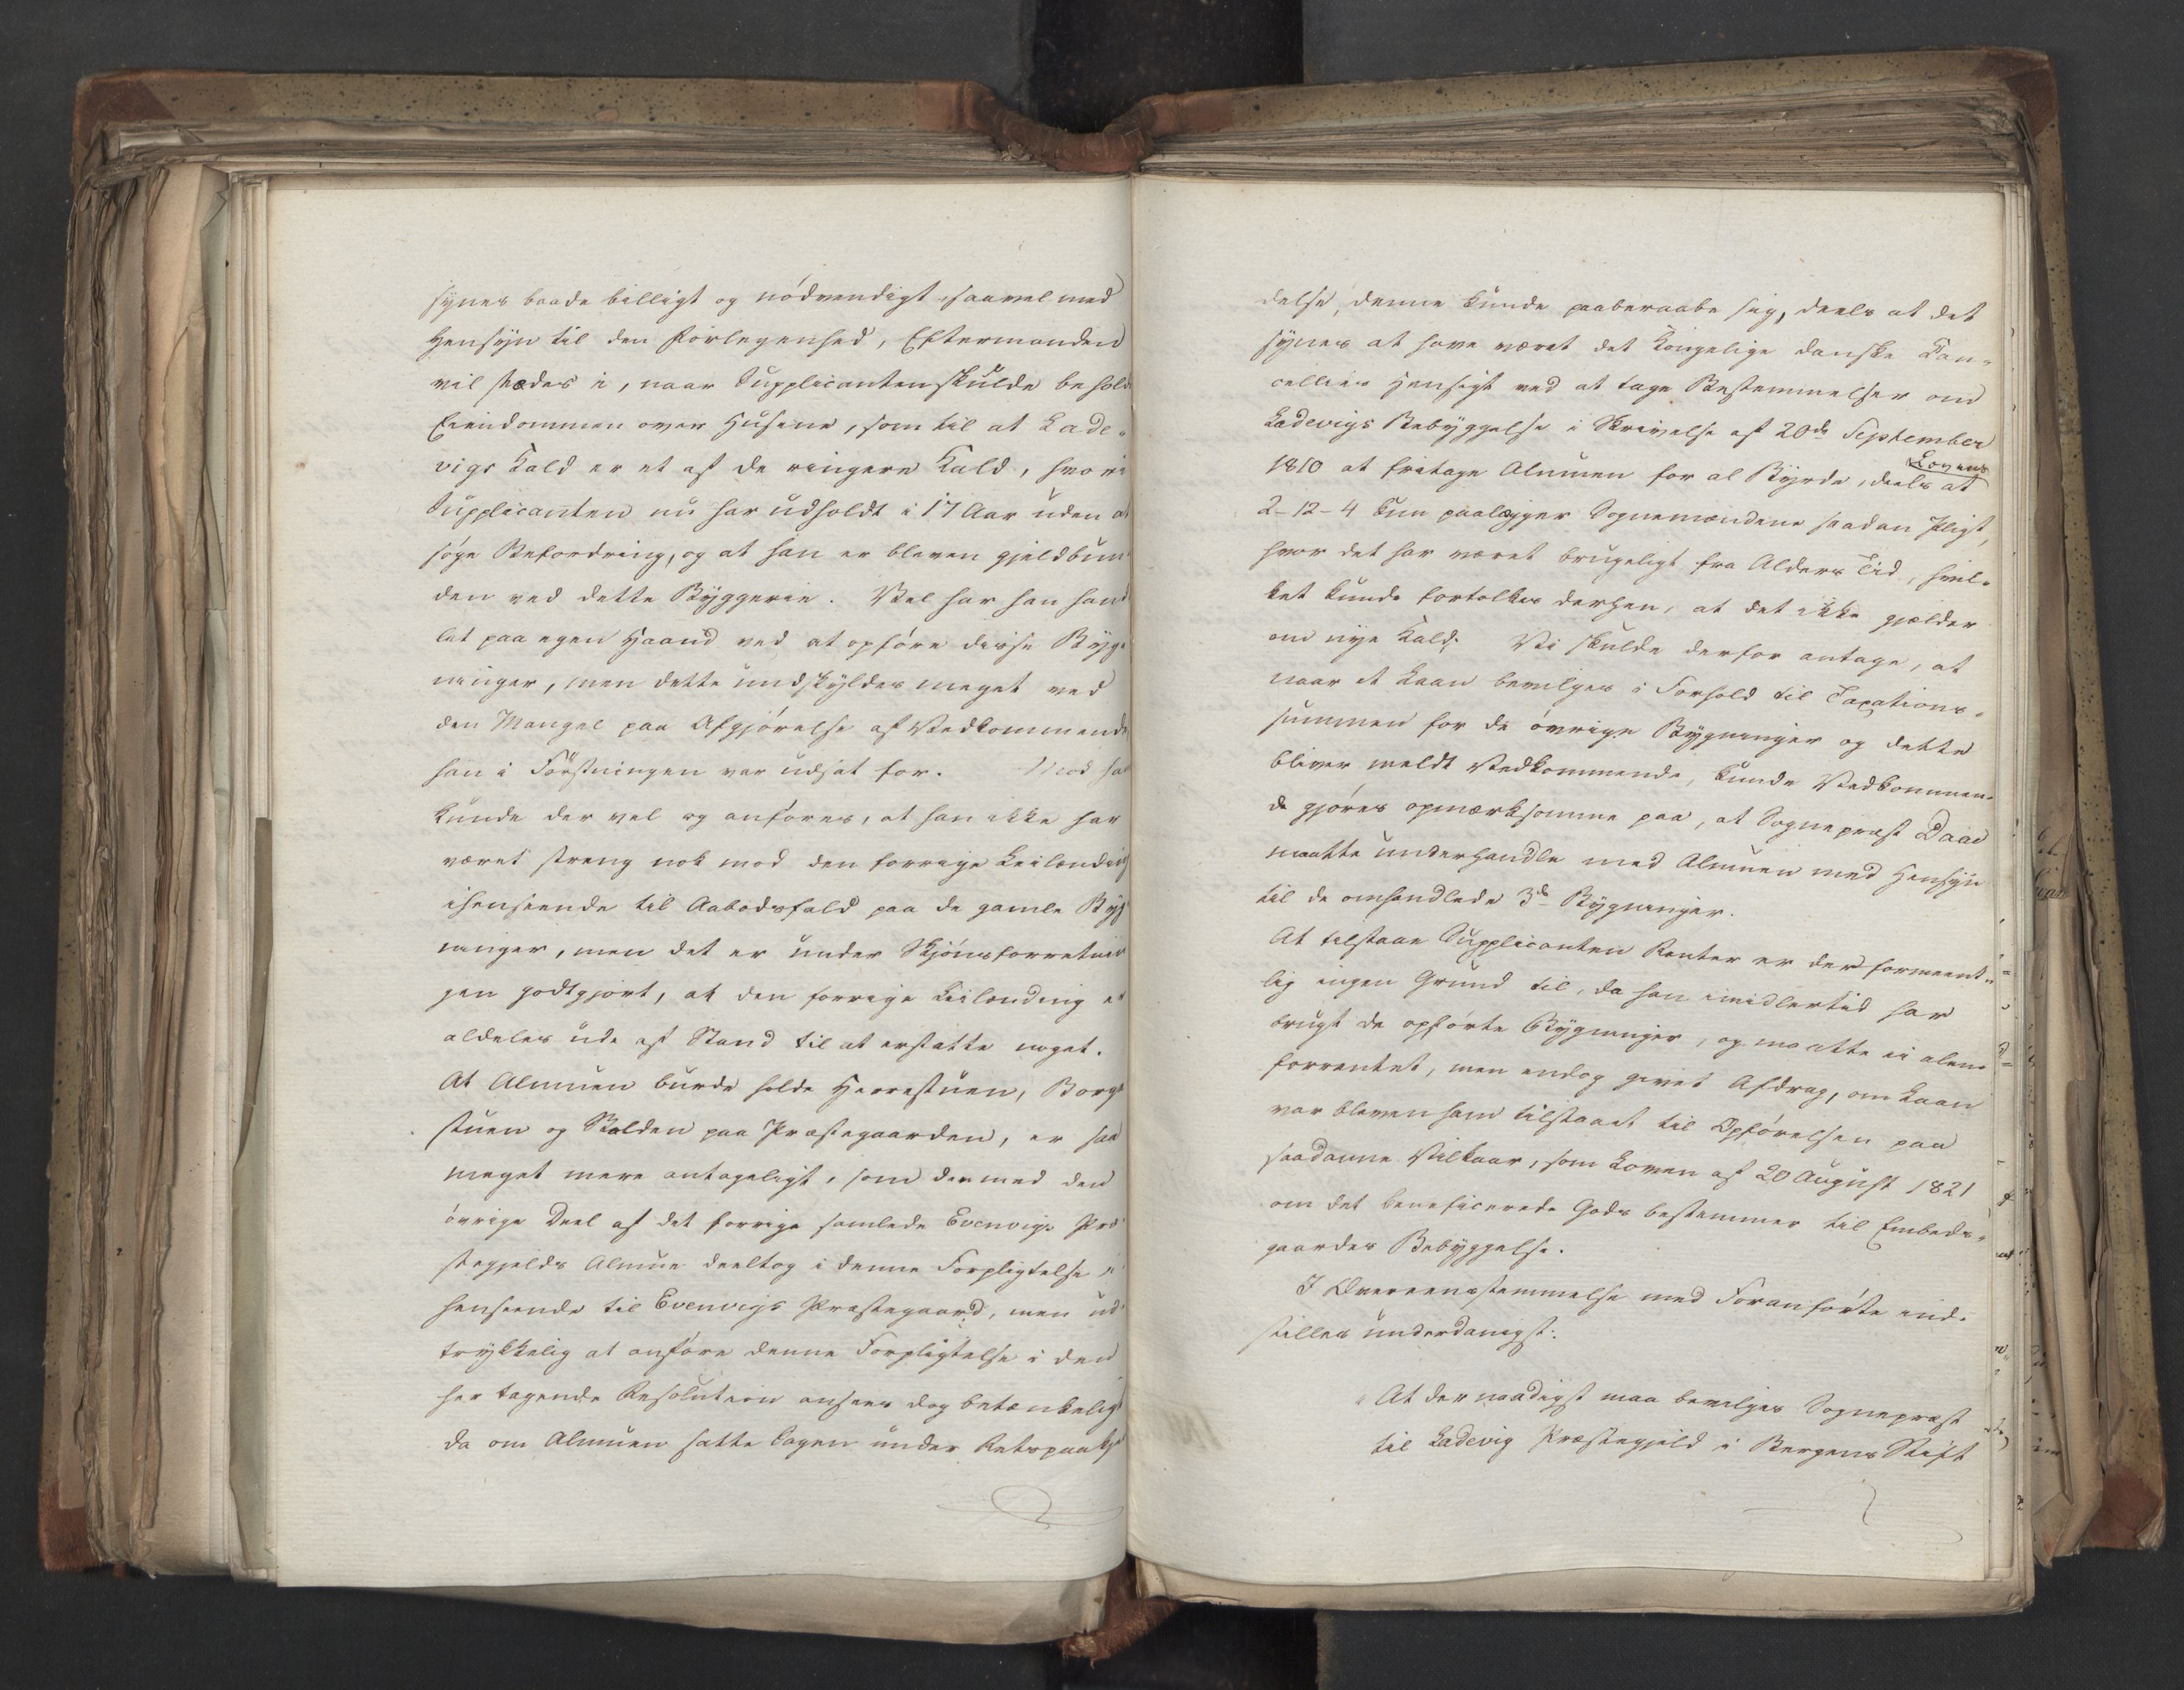 synes baade billigt og nödvendigt, saavel med
Hensÿn til den Forlegenhed, Eftermanden
vil stædes i, naar Supplicanten skulde behold
Eiendommen over Husene, som til at Lade-
vigs Kald er et af de ringere Kald, hvori
Supplicanten nu har udholdt i 17 Aar uden at
söge Befordring, og at han er bleven gjeldbun
den ved dette Bÿggerie. Vel har han hand
let paa egen Haand ved at opföre disse Bÿg
ninger, men dette undskÿldes meget ved
den Mangel paa Afgjörelse af Vedkommende
han i Förstningen var udsat for. Mod ham
kunde der vel og anföres, at han ikke har
været streng nok mod den forrige Leilænding
ihenseende til Aabodsfald paa de gamle Bÿg
ninger, men det er under Skjönsforretnin
gen godtgjort, at den forrige Leilænding er
aldeles ude af Stand til at erstatte noget.
At Almuen burde holde Herrestuen, Borge
stuen og Stalden paa Præstegaarden, er saa
meget mere antageligt, som dermed den
övrige Deel af det forrige samlede Evenvigs Præ
stegjelds Almue deeltog i denne Forpligtelse i
henseende til Evenvigs Præstegaard, men ud
trÿkkelig at anföre denne Forpligtelse i den
her tagende Resolution ansees dog betænkeligt
da om Almuen satte Sagen under Retspaakj
delse, denne kunde paaberaabe sig, deels at det
sÿnes at have været det Kongelige danske Can-
cellies Hensigt ved at tage Bestemmelser om
Ladevigs Bebÿggelse i Skrivelse af 20de September
1810 at fritage Almuen for al Bÿrde, deels at Lovens
2-12-4 kun paalægger Sognemændene saadan Pligt,
hvor det har været brugeligt fra Alders Tid, hvil-
ket kunde fortolkes derhen, at det ikke gjælder
om nÿe Kald. Vi skulde derfor antage, at
naar et Laan bevilges i Forhold til Taxations-
summen for de övrige Bÿgninger og dette
bliver meldt Vedkommende, kunde Vedkommen-
de gjöres opmærksomme paa, at Sognepræst Daae
maatte underhandle med Almuen med Hensÿn
til de omhandlede 3de Bÿgninger.
At tilstaae Supplicanten Renter er der formeent-
lig ingen Grund til, da han imidlertid har
brugt de opförte Bÿgninger, og maatte ei alene
forrentet, men endog givet Afdrag, om Laan
var bleven ham tilstaaet til Opförelsen paa
saadanne Vilkaar, som Loven af 20 August 1821
om det beneficerede Gods bestemmer til Embeds-
gaardes Bebÿggelse.
I Overeensstemmelse med Foranförte ind-
stilles underdanigst:
At der naadigst maa bevilges Sognepræst
til Ladevig Præstegjeld i Bergens Stift